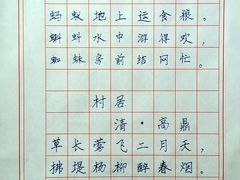 蚂蚁地上运食粮。
蝌蚪水中游得欢，
蜘蛛房前结网忙。
村居
清·高鼎
草长莺飞二月天，
拂堤杨柳醉春烟。